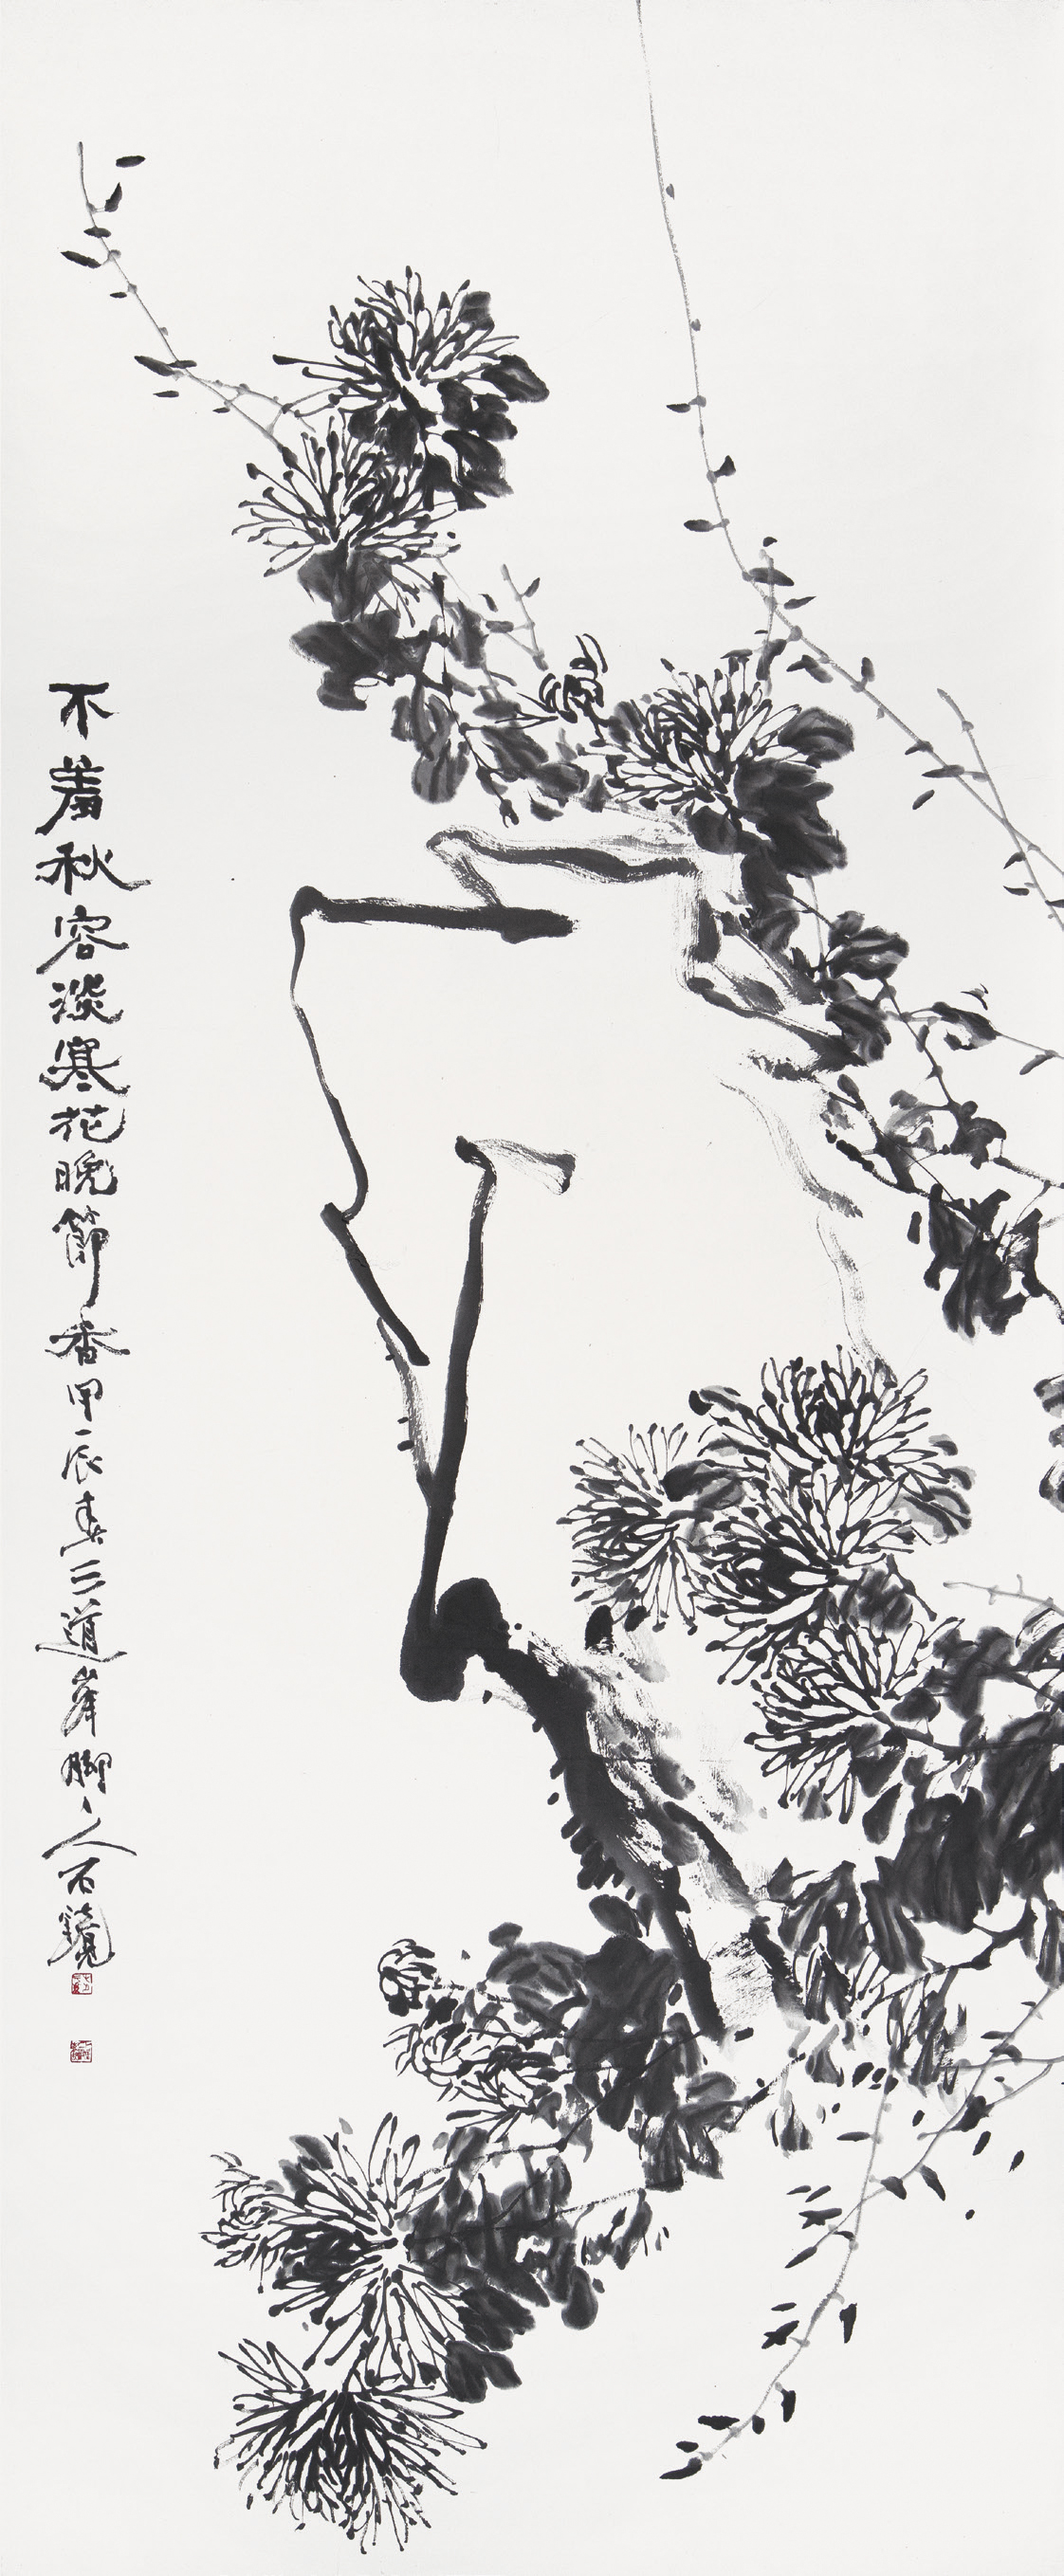 不羞秋容淡寒花晚節香甲辰春三道峯腳下人石觉